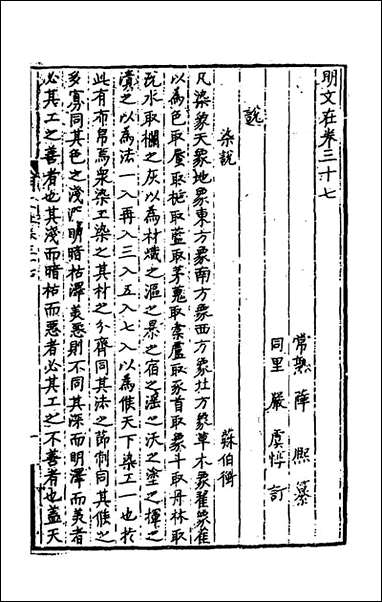 明文在卷三十七
常熟薛熙纂
同里嚴虞惇訂
說
染說
蘇伯衡
凡染象天象地象東方象南方象西方象北方象草木象翟象雀
以為色取蜃取梔取藍取茅蒐取橐盧取豕首取象斗取丹秫取
涚水取欄之灰以為材熾之漚之暴之宿之淫之沃之塗之揮之
漬之以為法一入再入三入五入七入以為候天下染工一也於
此有布帛焉眾染工染之其材之分齊同其法之節制同其候之
多寡同其色之淺深明暗枯澤美惡則不同其深而明澤而美者
必其工之善者也其淺而暗枯而惡者必其工之不善者也蓋天